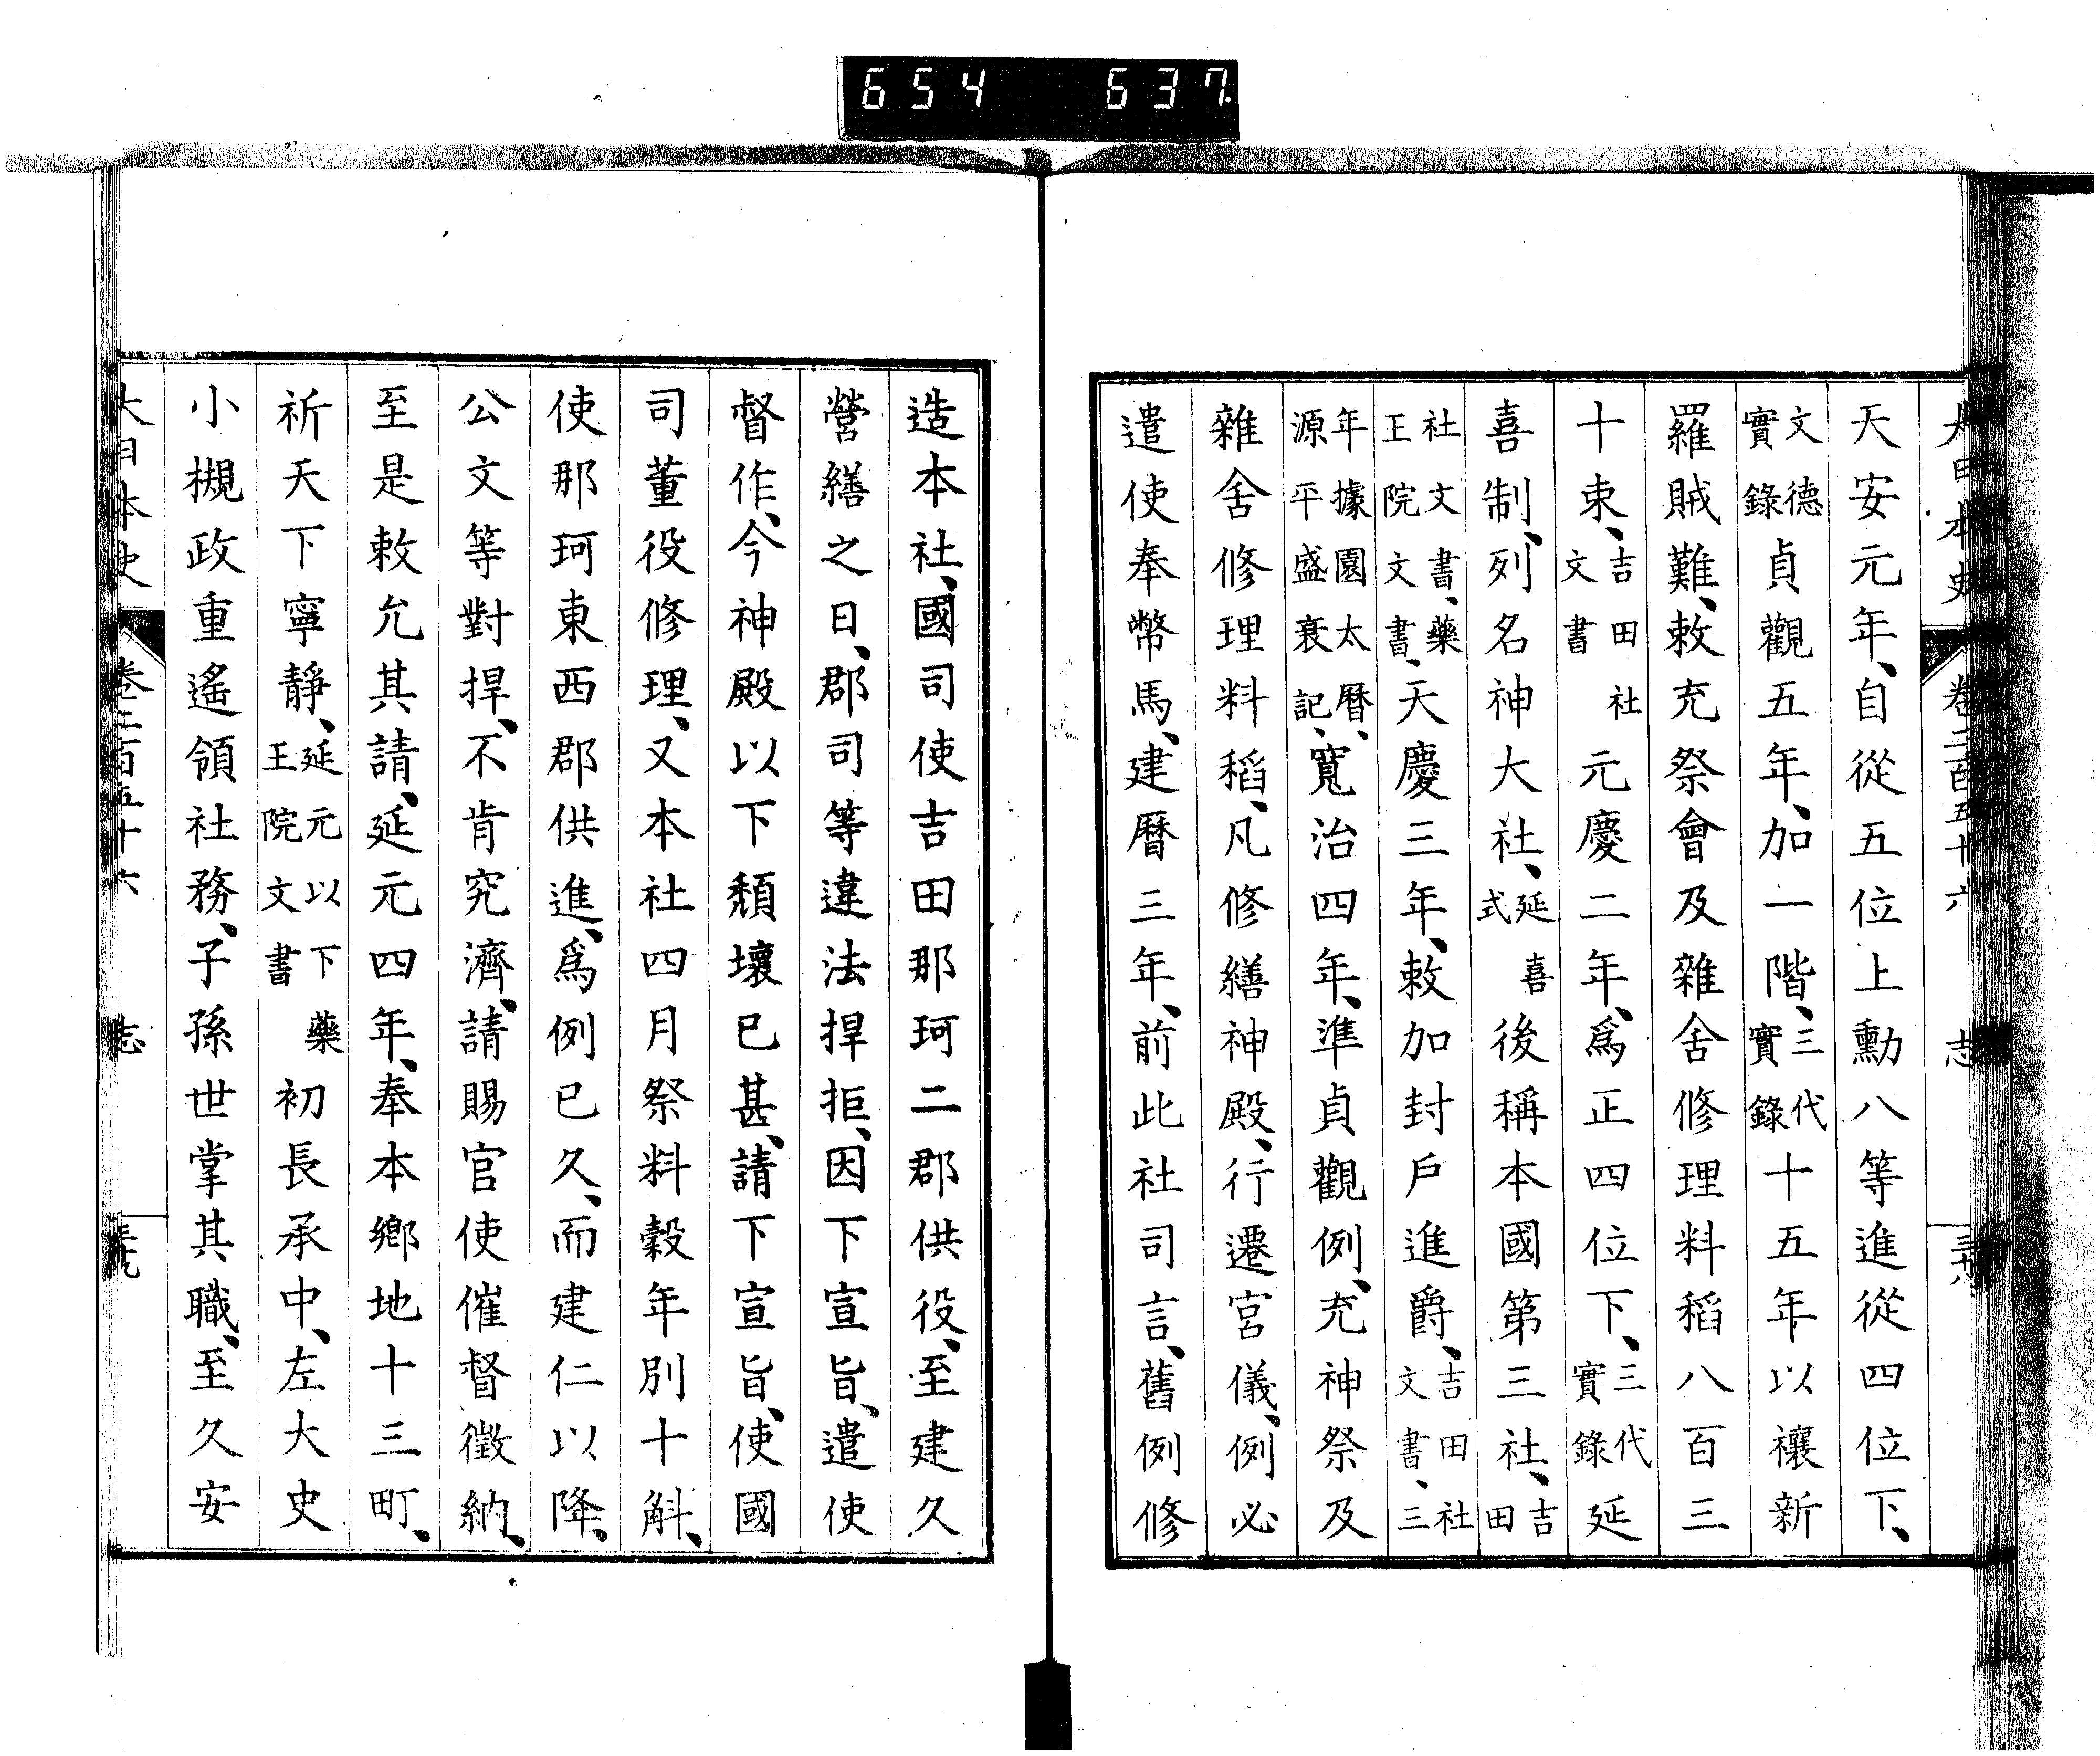 654 637
大日本史 卷二百五十六 志 三十八
天安元年、自從五位上勳八等進從四位下、
文德實錄貞觀五年、加一階、三代實錄十五年以禳新
羅賊難、敕充祭會及雜舍修理料稻八百三
十束、吉田社文書元慶二年、爲正四位下、三代實錄延
喜制、列名神大社、延喜式後稱本國第三社、吉田
社文書、藥王院文書、天慶三年、敕加封戶進爵、吉田社文書、三
年據園太曆、源平盛衰記、寬治四年、準貞觀例、充神祭及
雜舍修理料稻、凡修繕神殿、行遷宮儀、例必
遣使奉幣馬、建曆三年、前此社司言、舊例修
造本社、國司使吉田那珂二郡供役、至建久
營繕之日、郡司等違法捍拒、因下宣旨、遣使
督作、今神殿以下頹壞已甚、請下宣旨、使國
司董役修理、又本社四月祭料穀年別十斛、
使那珂東西郡供進、爲例已久、而建仁以降、
公文等對捍、不肯究濟、請賜官使催督徵納、
至是敕允其請、延元四年、奉本鄉地十三町、
祈天下寧靜、延元以下藥王院文書初長承中、左大史
小槻政重遙領社務、子孫世掌其職、至久安
大日本史 卷二百五十六 志 三十九